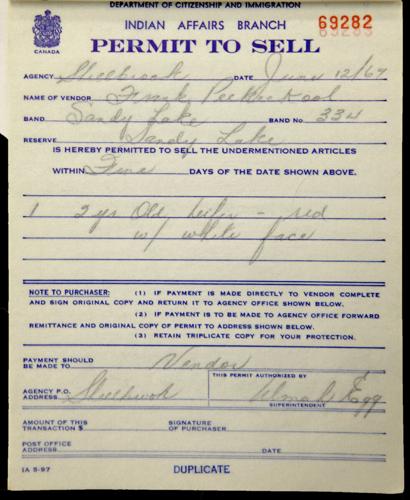 DEPARTMENT OF CITIZENSHIP AND IMMIGRATION
INDIAN AFFAIRS BRANCH
69282
69282
CANADA
PERMIT TO SELL
AGENCY Shellbrook DATE June 12/67
NAME OF VENDOR Frank
BAND Sandy Lake BAND NO. 334
RESERVE Sandy Lake
IS HEREBY PERMITTED TO SELL THE UNDERMENTIONED ARTICLES
WITHIN DAYS OF THE DATE SHOWN ABOVE.
1 2 yr Old heifer - red
w/ white face
NOTE TO PURCHASER: (1) IF PAYMENT IS MADE DIRECTLY TO VENDOR COMPLETE
AND SIGN ORIGINAL COPY AND RETURN IT TO AGENCY OFFICE SHOWN BELOW.
(2) IF PAYMENT IS TO BE MADE TO AGENCY OFFICE FORWARD
REMITTANCE AND ORIGINAL COPY OF PERMIT TO ADDRESS SHOWN BELOW.
(3) RETAIN TRIPLICATE COPY FOR YOUR PROTECTION.
PAYMENT SHOULD
BE MADE TO Vendor
AGENCY P.O.
ADDRESS
THIS PERMIT AUTHORIZED BY
SUPERINTENDENT
AMOUNT OF THIS
TRANSACTION $
SIGNATURE
OF PURCHASER
POST OFFICE
ADDRESS
DATE
IA 5-97
DUPLICATE